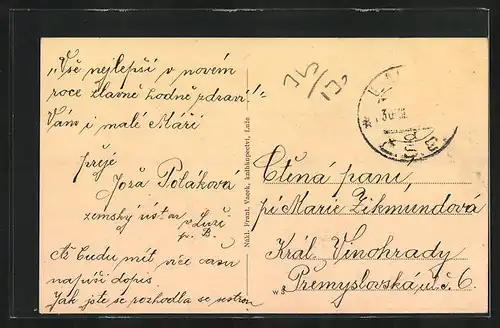 „Vše nejlepší v novém
roce hlavně hodně zdraví!"
Vám i malé Máři
přeje
Joža Poláková
zemský ústav v Luži
p. B.
Až budu mít více času
napíši dopis.
Jak jste se rozhodla se sestrou
Nákl. Frant. Vacek, knihkupectví, Luže
Ctěná paní,
pí Marie Zikmundova
Král. Vinohrady
Přemyslovská ul. č. 6.